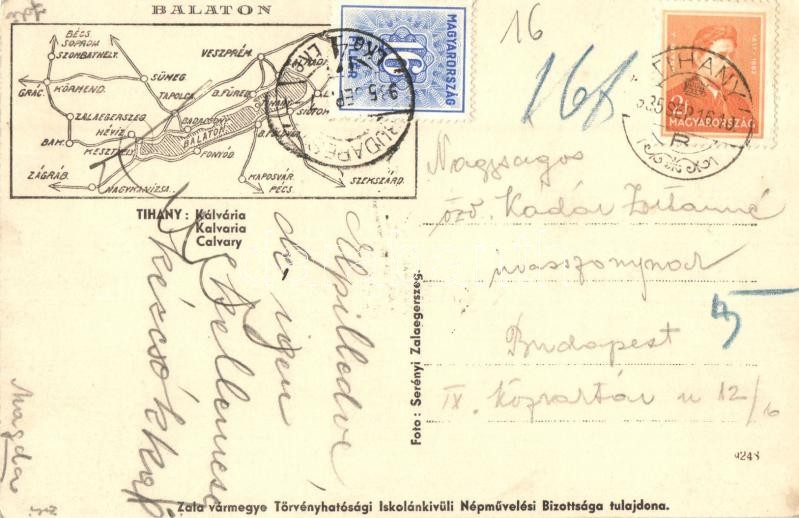 BALATON
BÉCS
SOPRON
SZOMBATHELY.
VESZPRÉM.
GRÁC.
KÖRMEND.
SÜMEG
TAPOLCA
B.FÜRED.
TIHANY
SIÓFOK
ZALAEGERSZEG.
HÉVIZ.
BADACSONY
BALATON
B.FÖLDVÁR
KESZTHELY.
FONYÓD.
ZÁGRÁB.
NAGYKANIZSA.
KAPOSVÁR
PÉCS.
SZEKSZÁRD.
TIHANY : Kálvária
Kalvaria
Calvary
MAGYARORSZÁG
16
FILLÉR
BUDAPEST
16
16f
TIHANY
MAGYARORSZÁG
Nagyságos
özv. Kádár Zoltánné
úrasszonynak
Budapest
IX. Köztelek u 12/b
Elpilledve
de igen
kellemesen
kézcsókkal
Magda
Foto: Serényi Zalaegerszeg.
9248
Zala vármegye Törvényhatósági Iskolánkivüli Népművelési Bizottsága tulajdona.